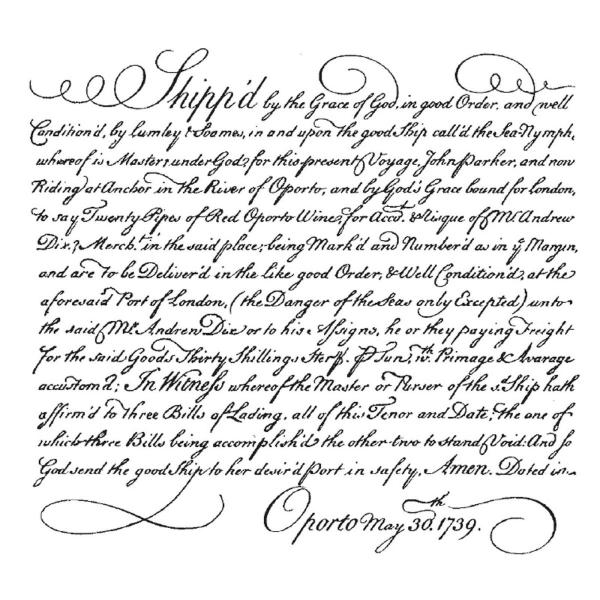 Shipp'd by the Grace of God, in good Order, and well
Condition'd, by Lumley & Soames, in and upon the good Ship call'd the Sea-Nymph,
whereof is Master, under God, for this present Voyage, John Parker, and now
Riding at Anchor in the River of Oporto, and by God's Grace bound for London,
to say Twenty Pipes of Red Oporto Wine, for Acct. & Risque of Mr. Andrew
Dix, Merch.t in the said place; being Mark'd and Number'd as in ye Margin,
and are to be Deliver'd in the like good Order, & Well Condition'd, at the
aforesaid Port of London, (the Danger of the Seas only Excepted) unto
the said Mr. Andrew Dix or to his Assigns, he or they paying Freight
for the said Goods Thirty Shillings Sterl. ⅌ Tun, wth. Primage & Avarage
accustom'd; In Witness whereof the Master or Purser of the sd. Ship hath
affirm'd to three Bills of Lading, all of this Tenor and Date; the one of
which three Bills being accomplish'd the other two to stand Void: And so
God send the good Ship to her desir'd Port in safety, Amen. Dated in
Oporto May 30.th 1739.